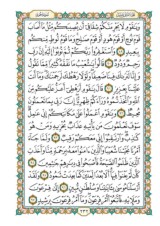 وَيَٰقَوْمِ لَا يَجْرِمَنَّكُمْ شِقَاقِىٓ أَن يُصِيبَكُم مِّثْلُ مَآ أَصَابَ
قَوْمَ نُوحٍ أَوْ قَوْمَ هُودٍ أَوْ قَوْمَ صَٰلِحٍ وَمَا قَوْمُ لُوطٍ مِّنكُم
بِبَعِيدٍ ٨٩ وَٱسْتَغْفِرُوا۟ رَبَّكُمْ ثُمَّ تُوبُوٓا۟ إِلَيْهِ إِنَّ رَبِّى
رَحِيمٌ وَدُودٌ ٩٠ قَالُوا۟ يَٰشُعَيْبُ مَا نَفْقَهُ كَثِيرًا مِّمَّا تَقُولُ
وَإِنَّا لَنَرَىٰكَ فِينَا ضَعِيفًا وَلَوْلَا رَهْطُكَ لَرَجَمْنَٰكَ وَمَآ أَنتَ
عَلَيْنَا بِعَزِيزٍ ٩١ قَالَ يَٰقَوْمِ أَرَهْطِىٓ أَعَزُّ عَلَيْكُم مِّنَ
ٱللَّهِ وَٱتَّخَذْتُمُوهُ وَرَآءَكُمْ ظِهْرِيًّا إِنَّ رَبِّى بِمَا تَعْمَلُونَ
مُحِيطٌ ٩٢ وَيَٰقَوْمِ ٱعْمَلُوا۟ عَلَىٰ مَكَانَتِكُمْ إِنِّى عَٰمِلٌ
سَوْفَ تَعْلَمُونَ مَن يَأْتِيهِ عَذَابٌ يُخْزِيهِ وَمَنْ هُوَ
كَٰذِبٌ وَٱرْتَقِبُوٓا۟ إِنِّى مَعَكُمْ رَقِيبٌ ٩٣ وَلَمَّا جَآءَ
أَمْرُنَا نَجَّيْنَا شُعَيْبًا وَٱلَّذِينَ ءَامَنُوا۟ مَعَهُۥ بِرَحْمَةٍ مِّنَّا وَأَخَذَتِ
ٱلَّذِينَ ظَلَمُوا۟ ٱلصَّيْحَةُ فَأَصْبَحُوا۟ فِى دِيَٰرِهِمْ جَٰثِمِينَ ٩٤
كَأَن لَّمْ يَغْنَوْا۟ فِيهَآ أَلَا بُعْدًا لِّمَدْيَنَ كَمَا بَعِدَتْ ثَمُودُ ٩٥
وَلَقَدْ أَرْسَلْنَا مُوسَىٰ بِـَٔايَٰتِنَا وَسُلْطَٰنٍ مُّبِينٍ ٩٦ إِلَىٰ فِرْعَوْنَ
وَمَلَإِي۟هِۦ فَٱتَّبَعُوٓا۟ أَمْرَ فِرْعَوْنَ وَمَآ أَمْرُ فِرْعَوْنَ بِرَشِيدٍ ٩٧
٢٣٢